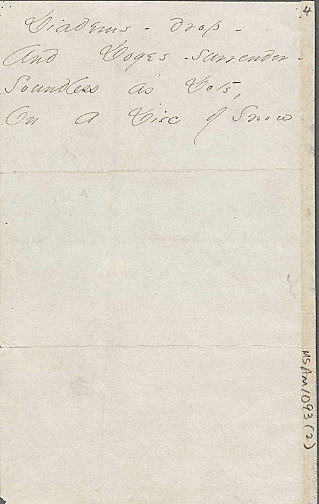 4
Diadems - drop -
And Doges - surrender -
Soundless as Dots,
On a Disc of Snow
MS Am 1093 (2)